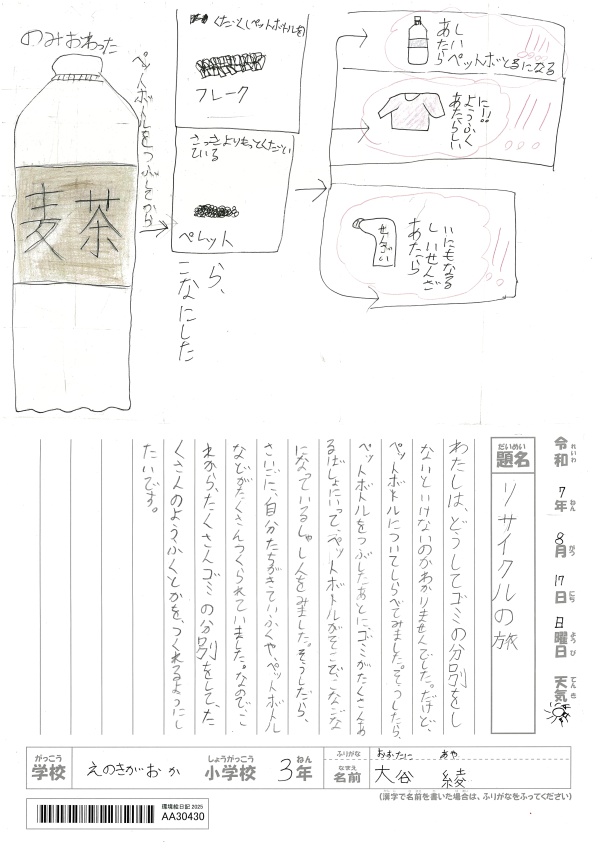 のみおわった
麦茶
ペットボトルをつぶしてから
くだいたペットボトルを
フレーク
さっきよりもっとくだいて
いる
ペレット
ら、
こなにした
あたら
しい
ペットボとるになる
あたらしい
ようふく
に!!
せんざい
あたら
しいせんざ
いにもなる
令和7年8月17日日曜日 天気
れいわ ねん がつ にち ようび てんき
だいめい
題名
リサイクルの旅
わたしは、どうしてゴミの分別をし
ないといけないのかわかりませんでした。だけど、
ペットボトルについてしらべてみました。そうしたら、
ペットボトルをつぶしたあとに、ゴミがたくさんあ
るばしょにいって、ペットボトルがそこで、こなごな
になっているしゃしんをみました。そうしたら、
さいごに、自分たちがきているふくや、ペットボトル
などがたくさんつくられていました。なので、こ
れから、たくさんゴミの分別をして、た
くさんのようふくとかを、つくれるようにし
たいです。
がっこう
学校
えのきがおか
しょうがっこう
小学校
3年
ねん
ふりがな
おおたに あや
なまえ
名前
大谷 綾
(漢字で名前を書いた場合は、ふりがなをふってください)
環境絵日記 2025
AA30430